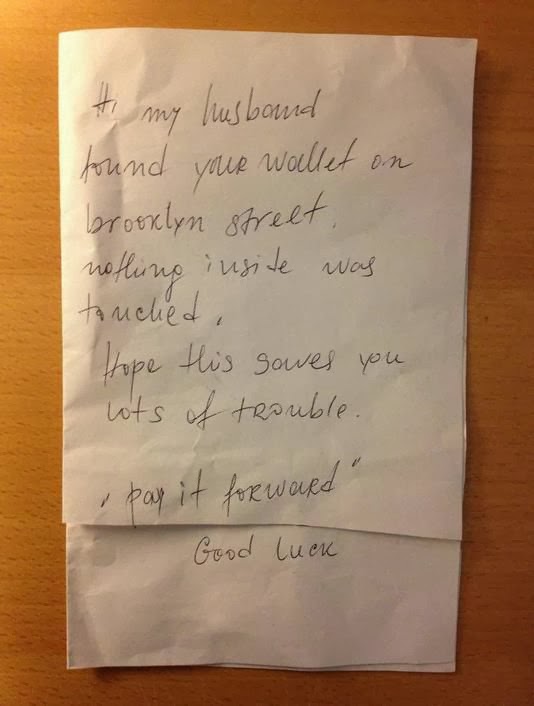 Hi my husband
found your wallet on
brooklyn street.
nothing inside was
touched.
Hope this saves you
lots of trouble.
„ pay it forward "
Good Luck